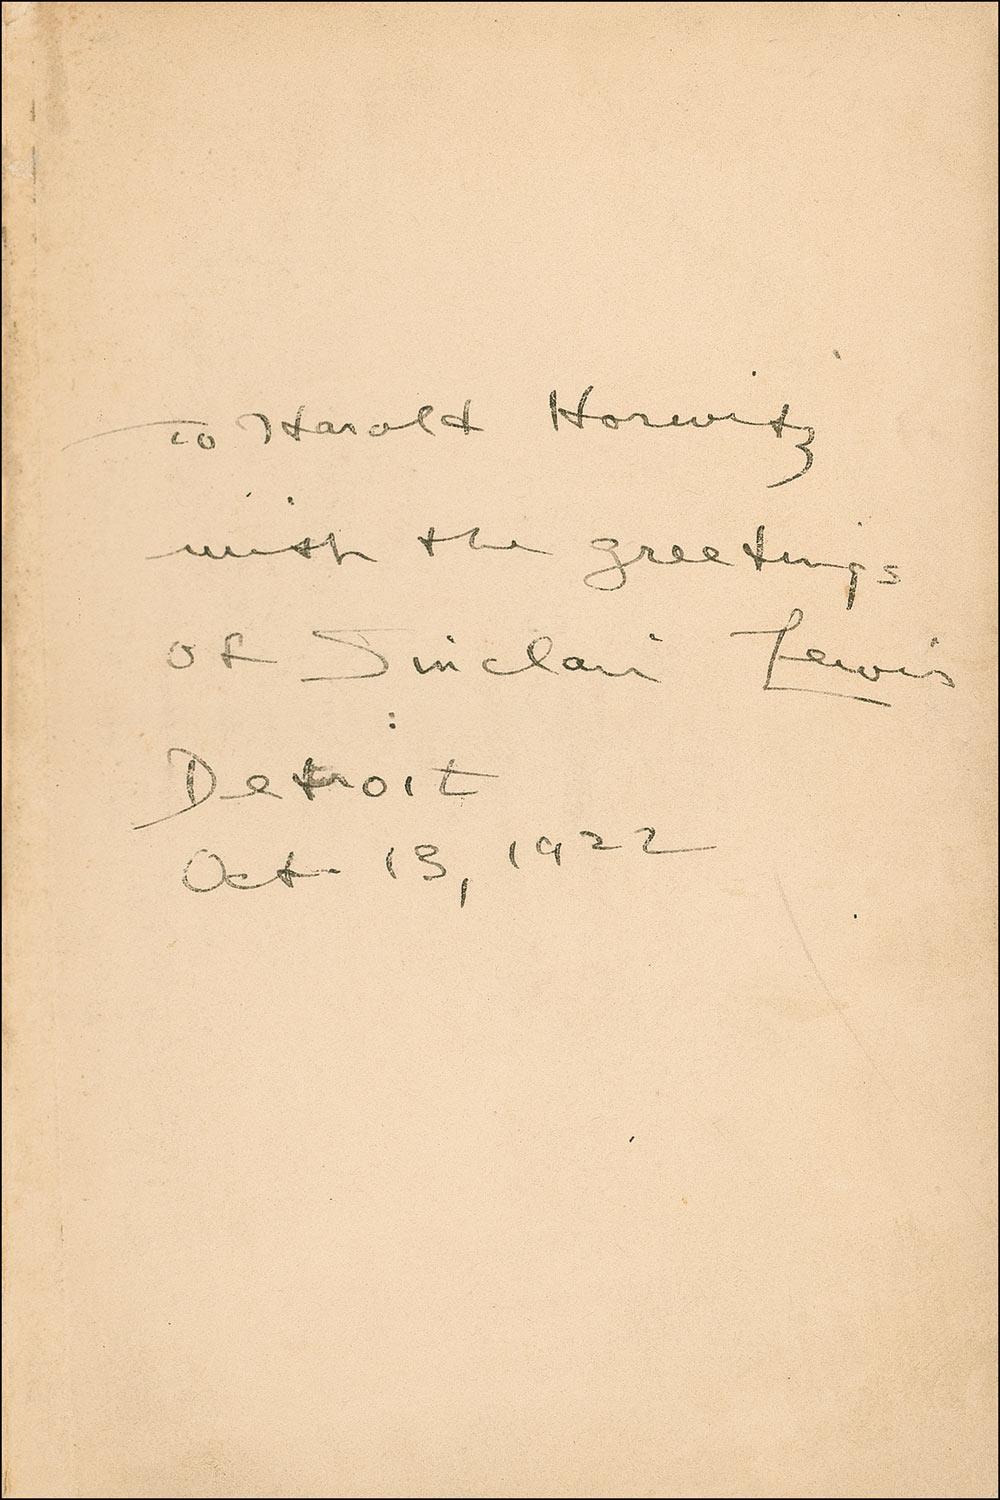 to Harold Horwitz
with the greetings
of Sinclair Lewis
Detroit
Oct. 13, 1922